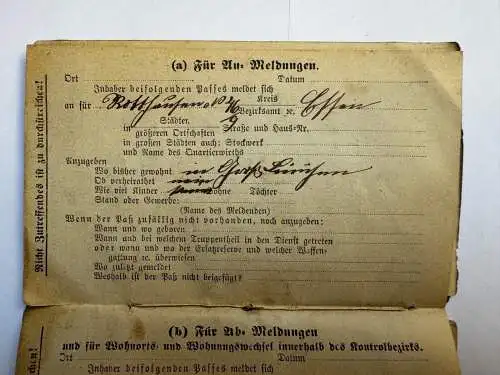 (a) Für An- Meldungen.
Ort Datum
Inhaber beifolgenden Passes meldet sich
an für Rotthausen Kreis Bezirksamt ꝛc. Essen
Städten
in größeren Ortschaften Straße und Haus-Nr.
in großen Städten auch: Stockwerk
und Name des Quartierwirths
Anzugeben
Wo bisher gewohnt in
Ob verheirathet nein
Wie viel Kinder Söhne Töchter
Stand oder Gewerbe:
(Name des Meldenden)
Wenn der Paß zufällig nicht vorhanden, noch anzugeben:
Wann und wo geboren
Wann und bei welchem Truppentheil in den Dienst getreten
oder wann und wo der Ersatzreserve und welcher Waffen-
gattung ꝛc. überwiesen
Wo zuletzt gemeldet
Weshalb ist der Paß nicht beigefügt?
Nicht Zutreffendes ist zu durchstreichen!
(b) Für Ab- Meldungen
und für Wohnorts- und Wohnungswechsel innerhalb des Kontrolbezirks.
Ort Datum
Inhaber beifolgenden Passes meldet sich